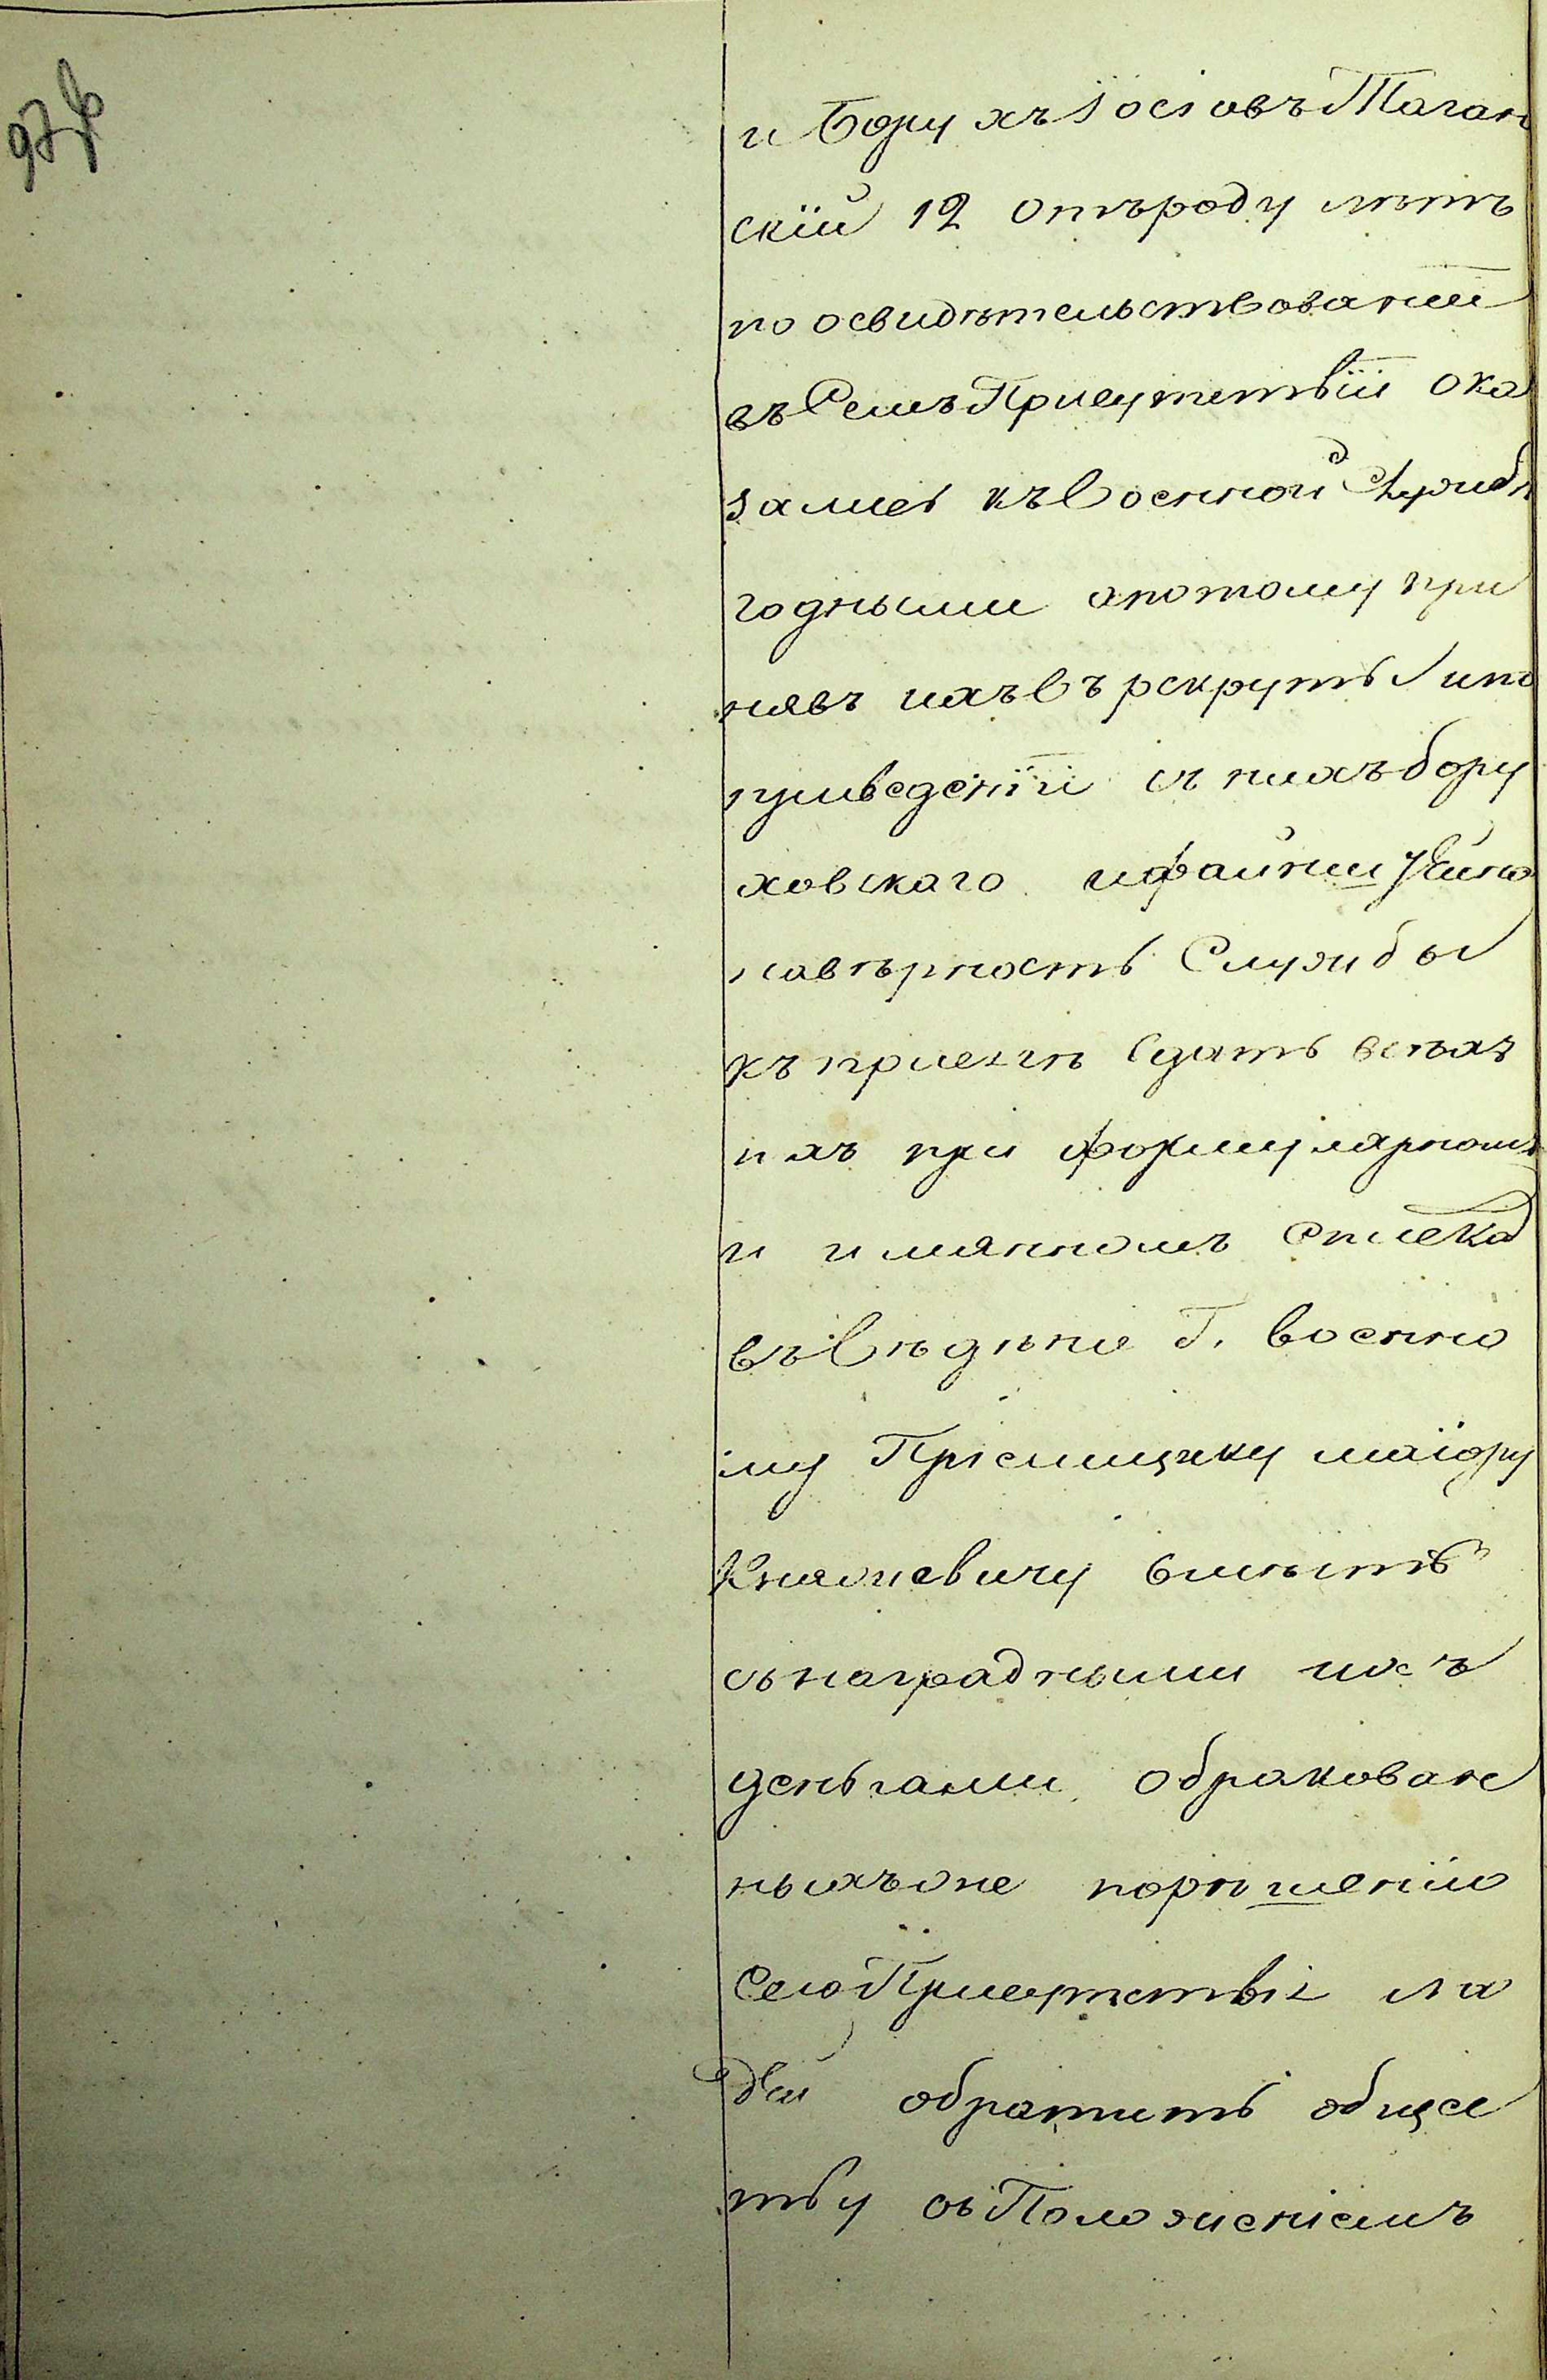 97 об
и Борухъ Іосіовъ Таган
скій 12 отъ роду лѣтъ
по освидѣтельствованіи
въ Семъ Присутствіи Ока
зались къ Военной Службѣ
годными а потому при
нявъ ихъ въ рекруты и по
приведеніи изъ нихъ бору
ховскаго и
на вѣрность Службы
къ присягѣ Сдать всѣхъ
ихъ при формулярномъ
и имянномъ Списка
въ Вѣдѣніе Г. военно
му Пріемщику маіору
Княжевичу вмѣстѣ
съ наградными ихъ
деньгами, обракован
ныхъ же по рѣшенію
Сего Присутствія лю
дей обратить обще
тву съ Положеніемъ